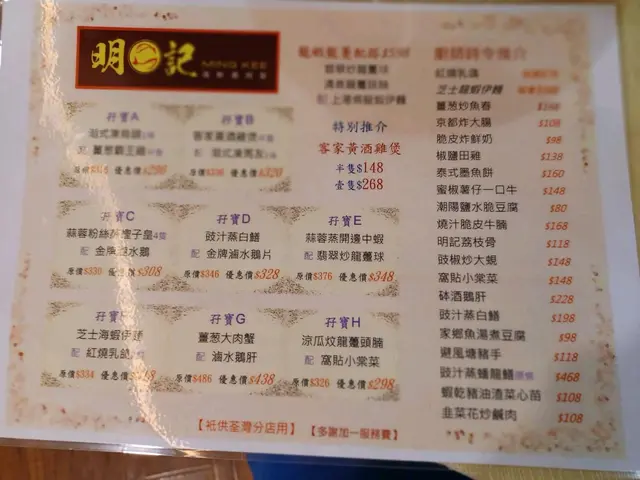 明記
MING KEE
特別推介
客家黃酒雞煲
半隻$148
壹隻$268
孖寶A
孖寶B
孖寶C
蒜蓉粉絲蒸蟶子皇4隻
配 金牌滷水鵝
原價$330 優惠價$308
孖寶D
豉汁蒸白鱔
配 金牌滷水鵝片
原價$346 優惠價$328
孖寶E
蒜蓉蒸開邊中蝦
配 翡翠炒龍躉球
原價$376 優惠價$348
芝士海蝦伊麵
配 紅燒乳鴿
原價$334
孖寶G
薑葱大肉蟹
配 滷水鵝肝
原價$486 優惠價$438
孖寶H
涼瓜炆龍躉頭腩
配 窩貼小棠菜
原價$326 優惠價$298
紅燒乳鴿
芝士龍蝦伊麵
薑葱炒魚春 $168
京都炸大腸 $108
脆皮炸鮮奶 $98
椒鹽田雞 $138
泰式墨魚餅 $160
蜜椒薯仔一口牛 $148
潮陽鹽水脆豆腐 $80
燒汁脆皮牛腩 $168
明記荔枝骨 $118
豉椒炒大蜆 $148
窩貼小棠菜 $148
砵酒鵝肝 $228
豉汁蒸白鱔 $198
家鄉魚湯煮豆腐 $98
避風塘豬手 $118
豉汁蒸蟠龍鱔 $468
蝦乾豬油渣菜心苗 $108
韭菜花炒鹹肉 $108
【衹供荃灣分店用】 【多謝加一服務費】